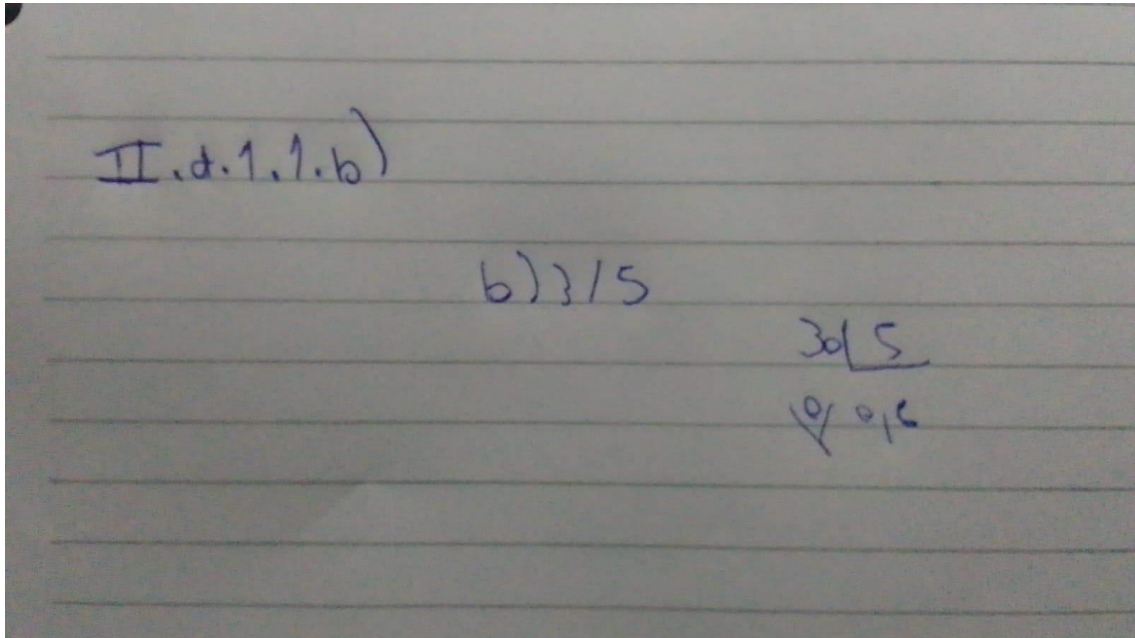 II.d.1.1.b)
b) 3/5
30 5
0 0,6